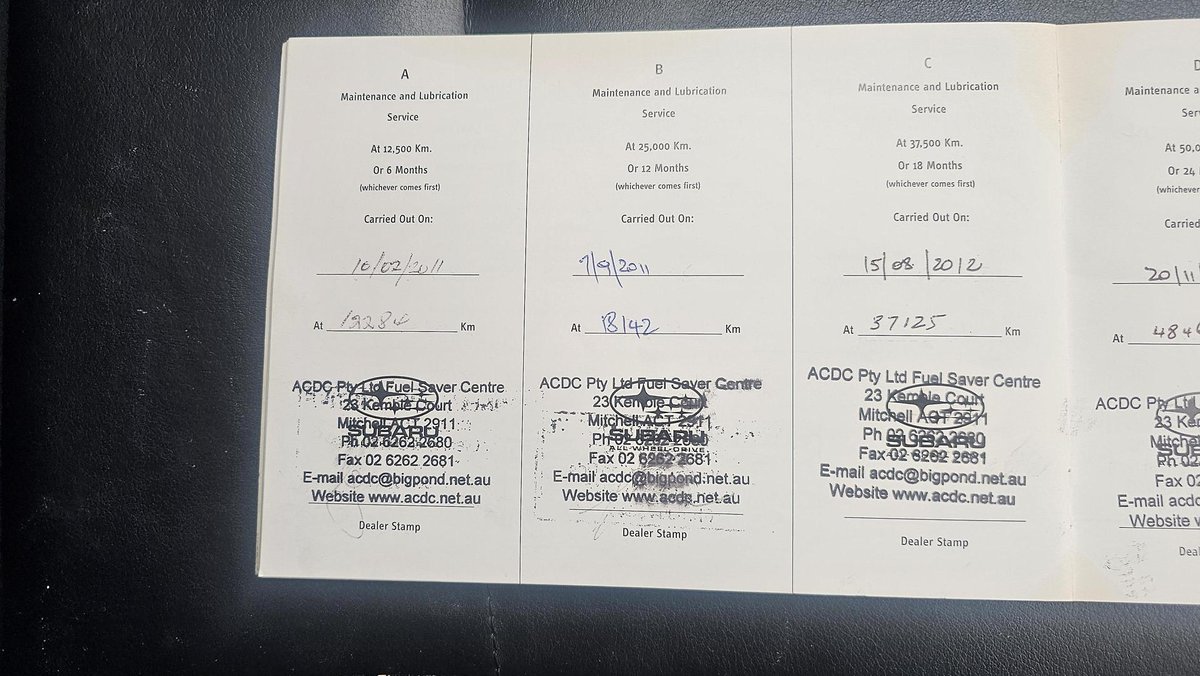 A
Maintenance and Lubrication
Service
At 12,500 Km.
Or 6 Months
(whichever comes first)
Carried Out On:
10/02/2011
At 12284 Km
ACDC Pty Ltd Fuel Saver Centre
23 Kemble Court
Mitchell ACT 2911
SUBARU
Ph 02 6262 2680
Fax 02 6262 2681
E-mail acdc@bigpond.net.au
Website www.acdc.net.au
Dealer Stamp
B
Maintenance and Lubrication
Service
At 25,000 Km.
Or 12 Months
(whichever comes first)
Carried Out On:
7/9/2011
At 18142 Km
ACDC Pty Ltd Fuel Saver Centre
23 Kemble Court
Mitchell ACT 2911
SUBARU
Ph 02 6262 2680
ALL-WHEEL-DRIVE
Fax 02 6262 2681
E-mail acdc@bigpond.net.au
Website www.acdc.net.au
Dealer Stamp
C
Maintenance and Lubrication
Service
At 37,500 Km.
Or 18 Months
(whichever comes first)
Carried Out On:
15/08/2012
At 37125 Km
ACDC Pty Ltd Fuel Saver Centre
23 Kemble Court
Mitchell ACT 2911
Ph 02 6262 2680
SUBARU
Fax 02 6262 2681
E-mail acdc@bigpond.net.au
Website www.acdc.net.au
Dealer Stamp
D
Maintenance a
Ser
At 50,0
Or 24
(whichever
Carried
20/11
At 484
ACDC Pty Ltd
23 Ke
Mitche
SUB
Ph 02
Fax 02
E-mail acd
Website w
Deal